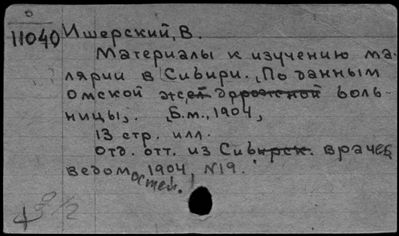 11040 Ишерский, В.
Материалы к изучению ма-
лярии в Сибири. По данным
Омской жел дорожной боль-
ницы,. Б.м., 1904,
13 стр. илл.
Отд. отт. из Сибирск. врачеб
ведомостей. 1904, N19.